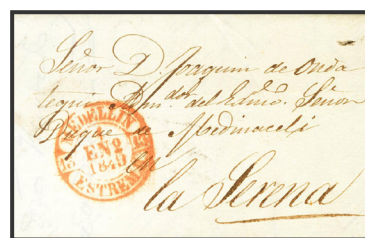 Señor D. Joaquin de Onda
tegui Admdor del Exmo. Señor
Duque de Medinaceli
en
la Serena
MEDELLIN
EN 2
1849
ESTREM